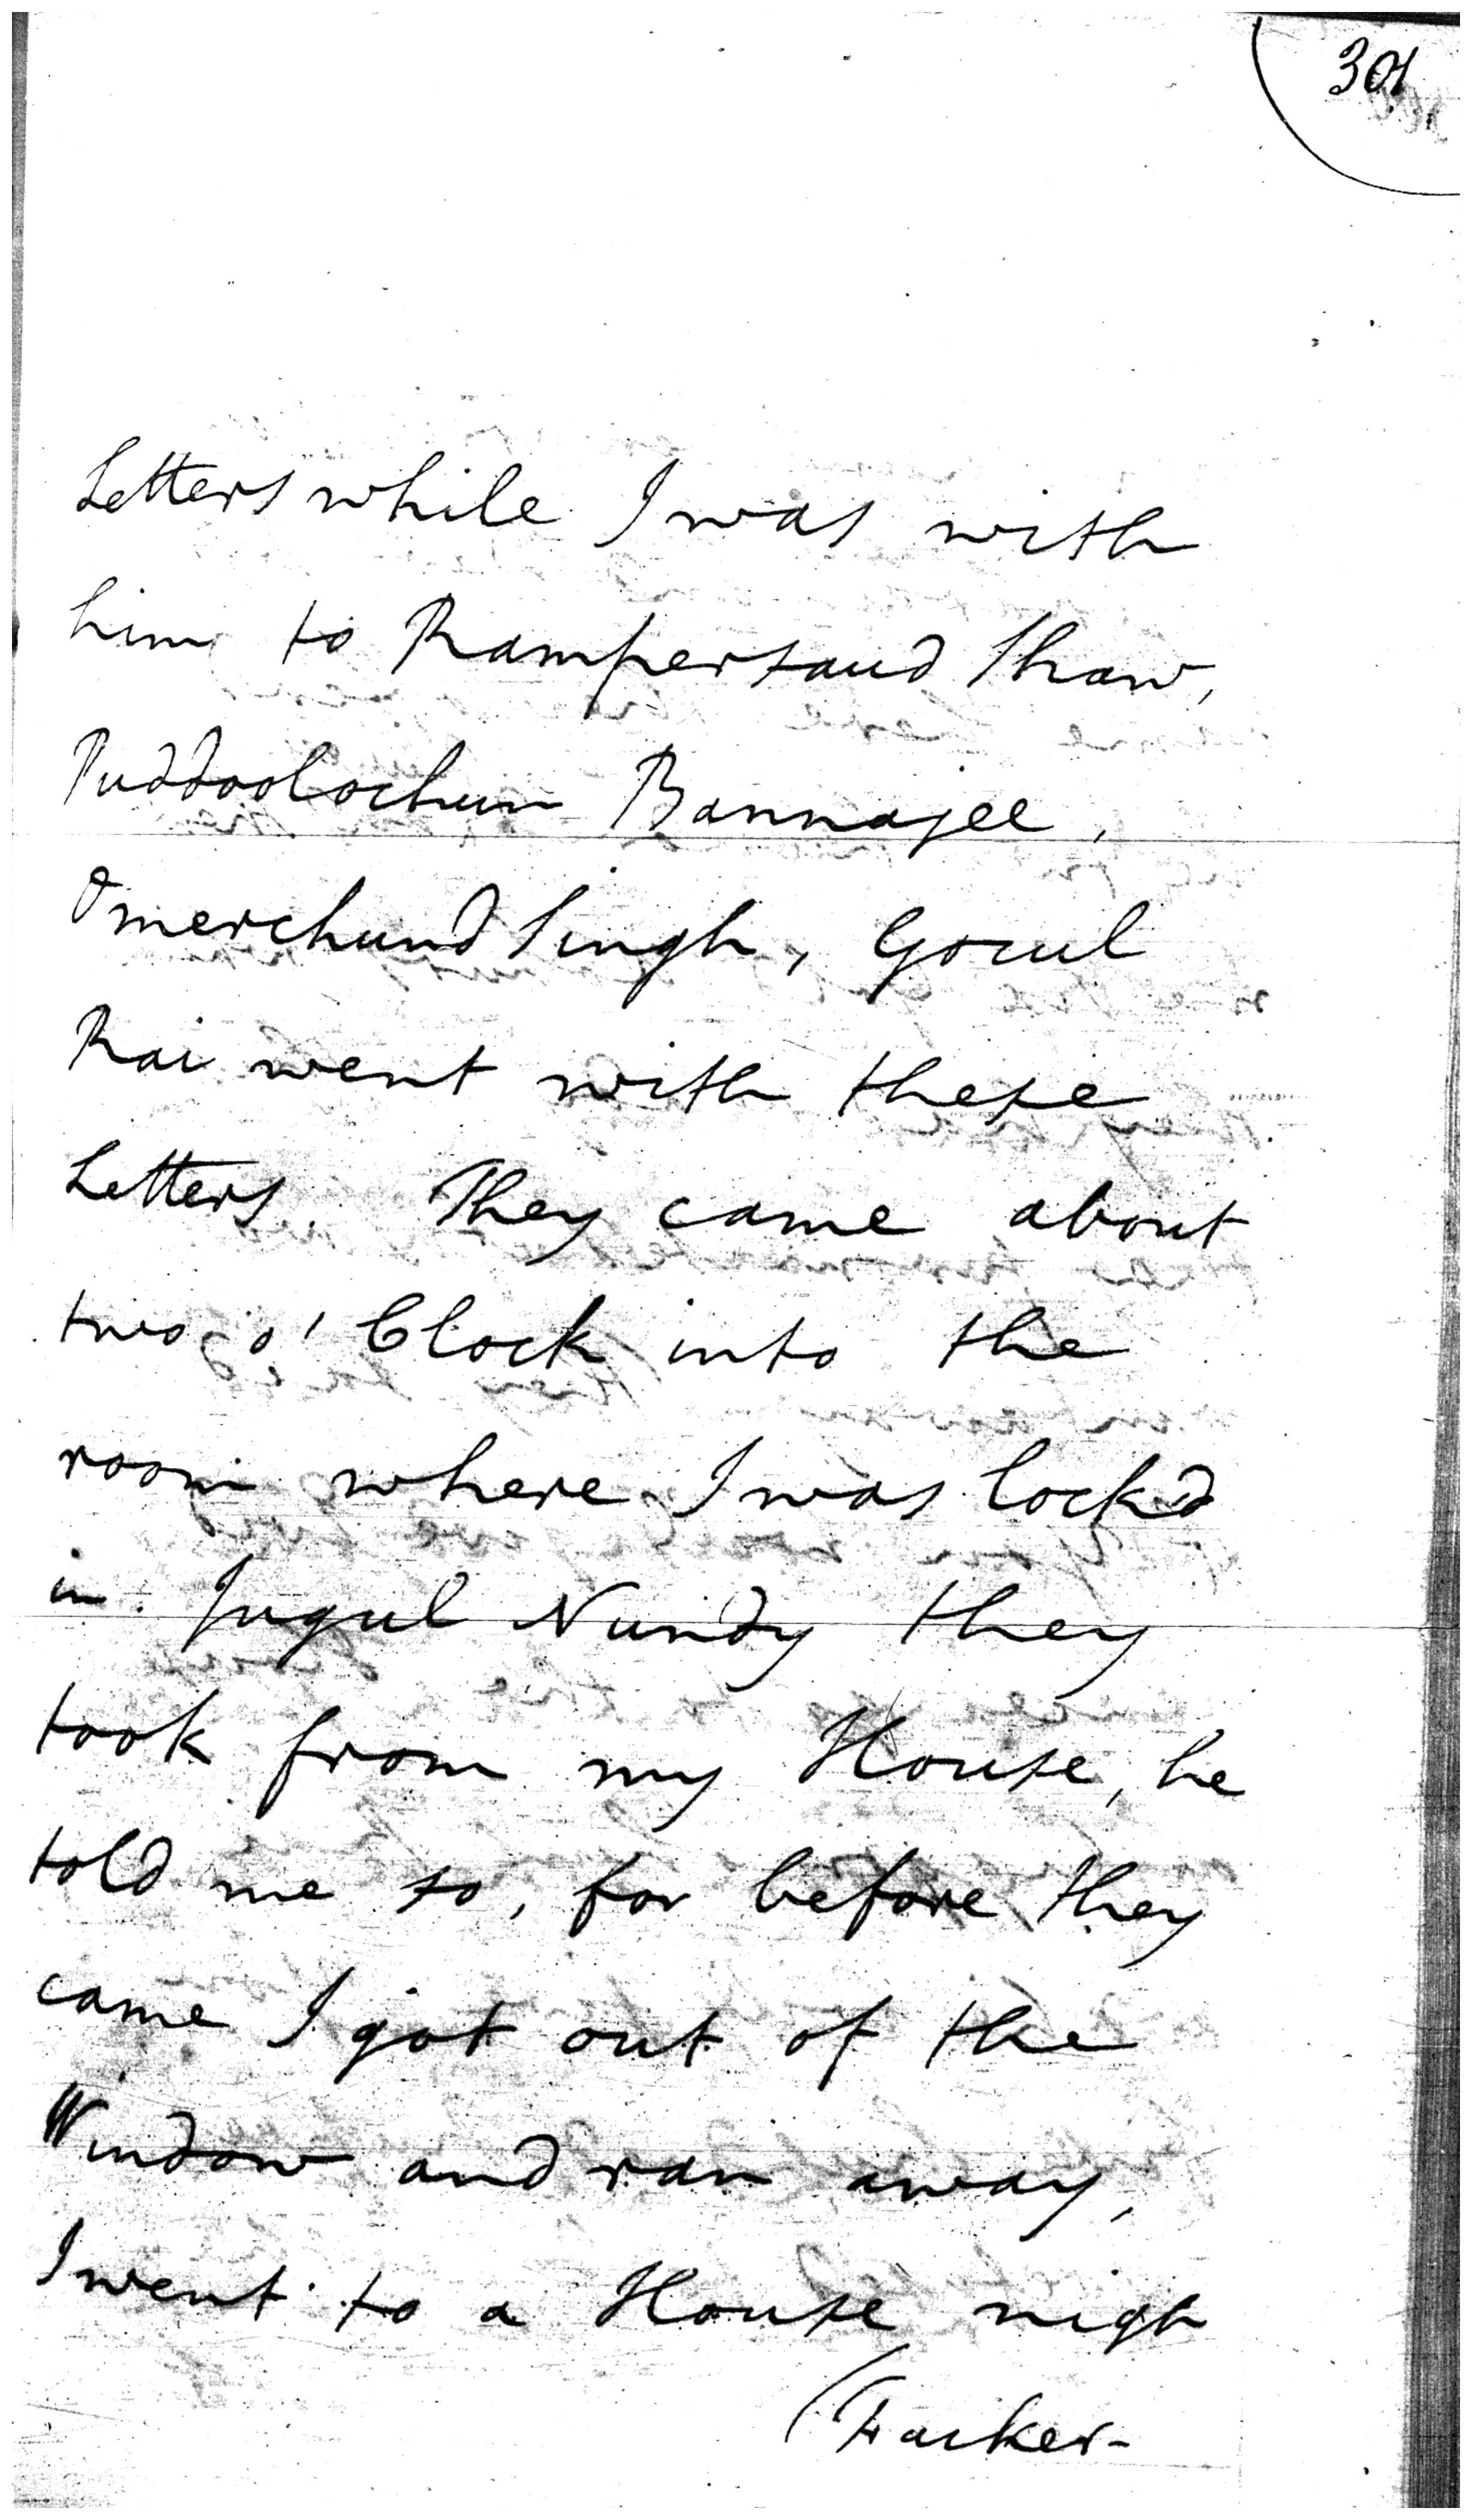 301
Letters while I was with
him to Rampersaud Shaw,
Puddoolochun Bannajee,
Omerchund Singh, Gocul
Rai went with these
Letters. They came about
two o'Clock into the
room where I was lock'd
in. Jugul Nundy they
took from my House, he
told me so, for before they
came I got out of the
Window and ran away,
I went to a House nigh
(Facker-